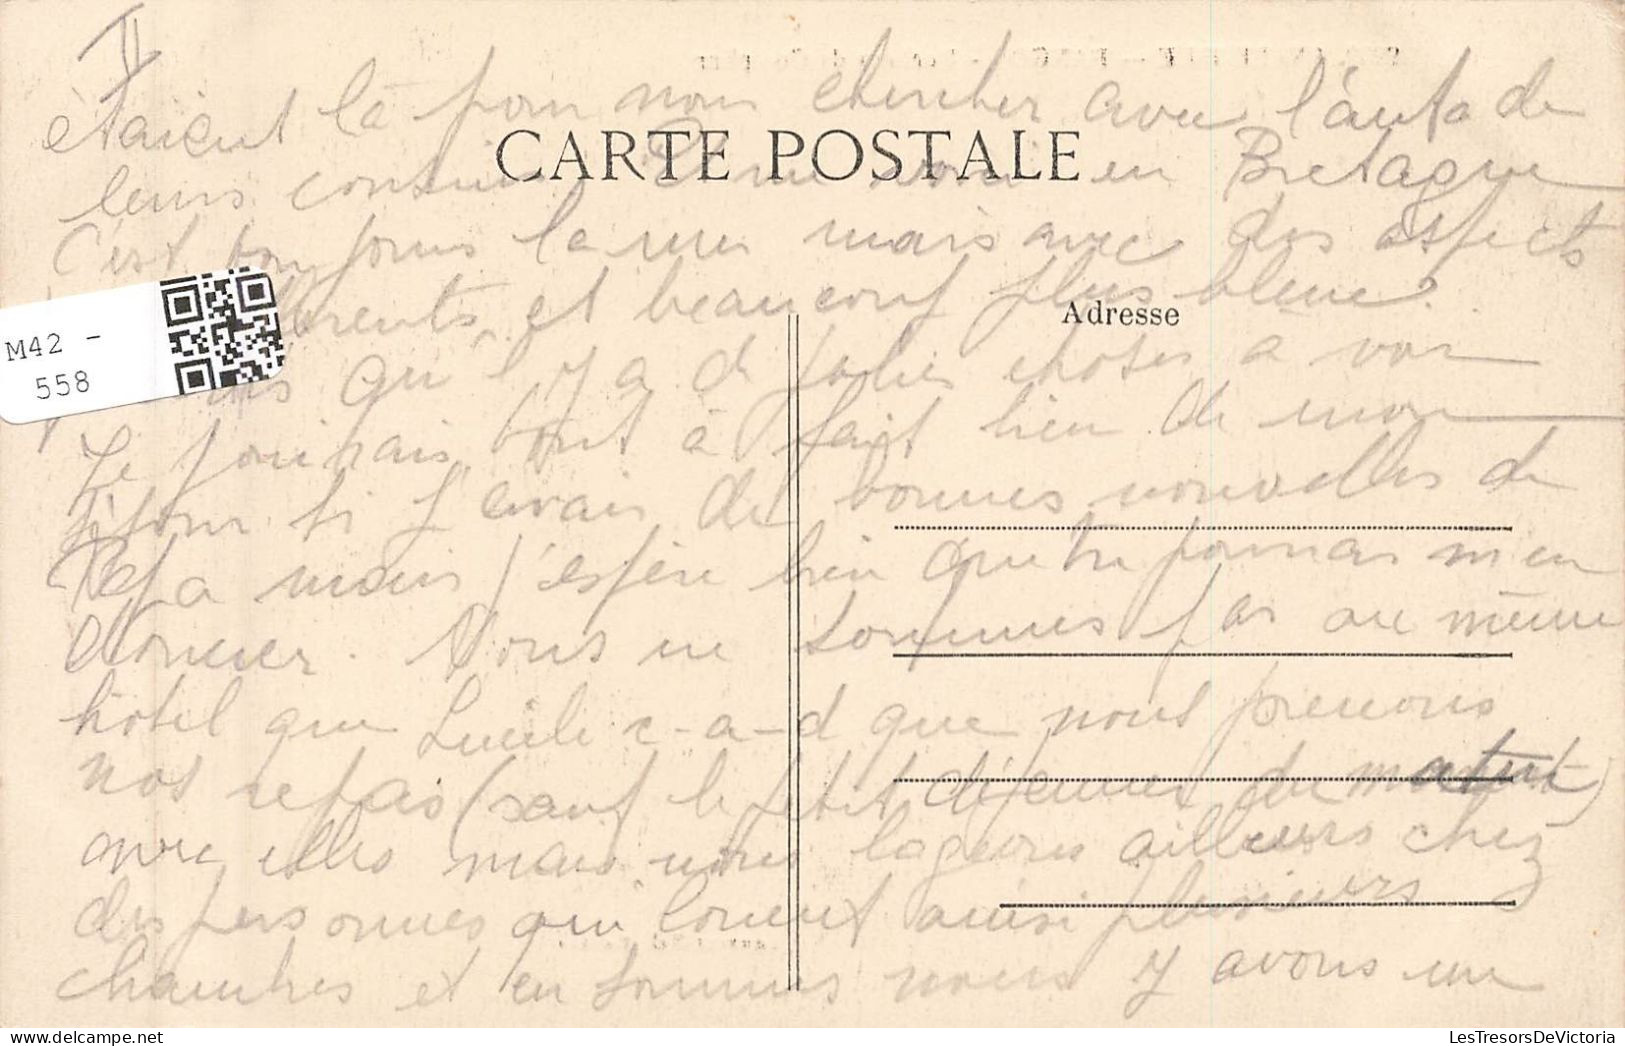 II
étaient là pour nous chercher avec l'auto de
CARTE POSTALE
leurs cousins. Et me voici en Bretagne
C'est toujours la mer mais avec des aspects
différents, et beaucoup plus bleue.
Adresse
M42 -
558
qu'il y a de jolies choses à voir
Je jouirais tout à fait bien de mon
séjour si j'avais de bonnes nouvelles de
Papa mais j'espère bien que tu pourras m'en
donner. Nous ne sommes pas au même
hôtel que Lucile c-a-d que nous prenons
nos repas (sauf le petit déjeuner du matin)
avec elles mais nous logeons ailleurs chez
des personnes qui louent ainsi plusieurs
chambres et en sommes nous y avons un
LesTresorsDeVictoria